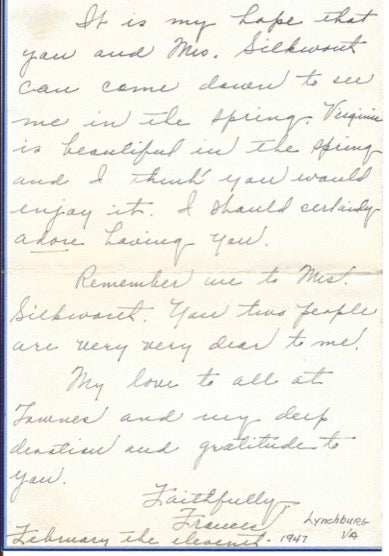 It is my hope that
you and Mrs. Silkworth
can come down to see
me in the spring. Virginia
is beautiful in the spring
and I think you would
enjoy it. I should certainly
adore having you.
Remember me to Mrs.
Silkworth. You two people
are very very dear to me.
My love to all at
Townes and my deep
devotion and gratitude to
you.
Faithfully,
Frances
Lynchburg
VA
February the eleventh - 1947